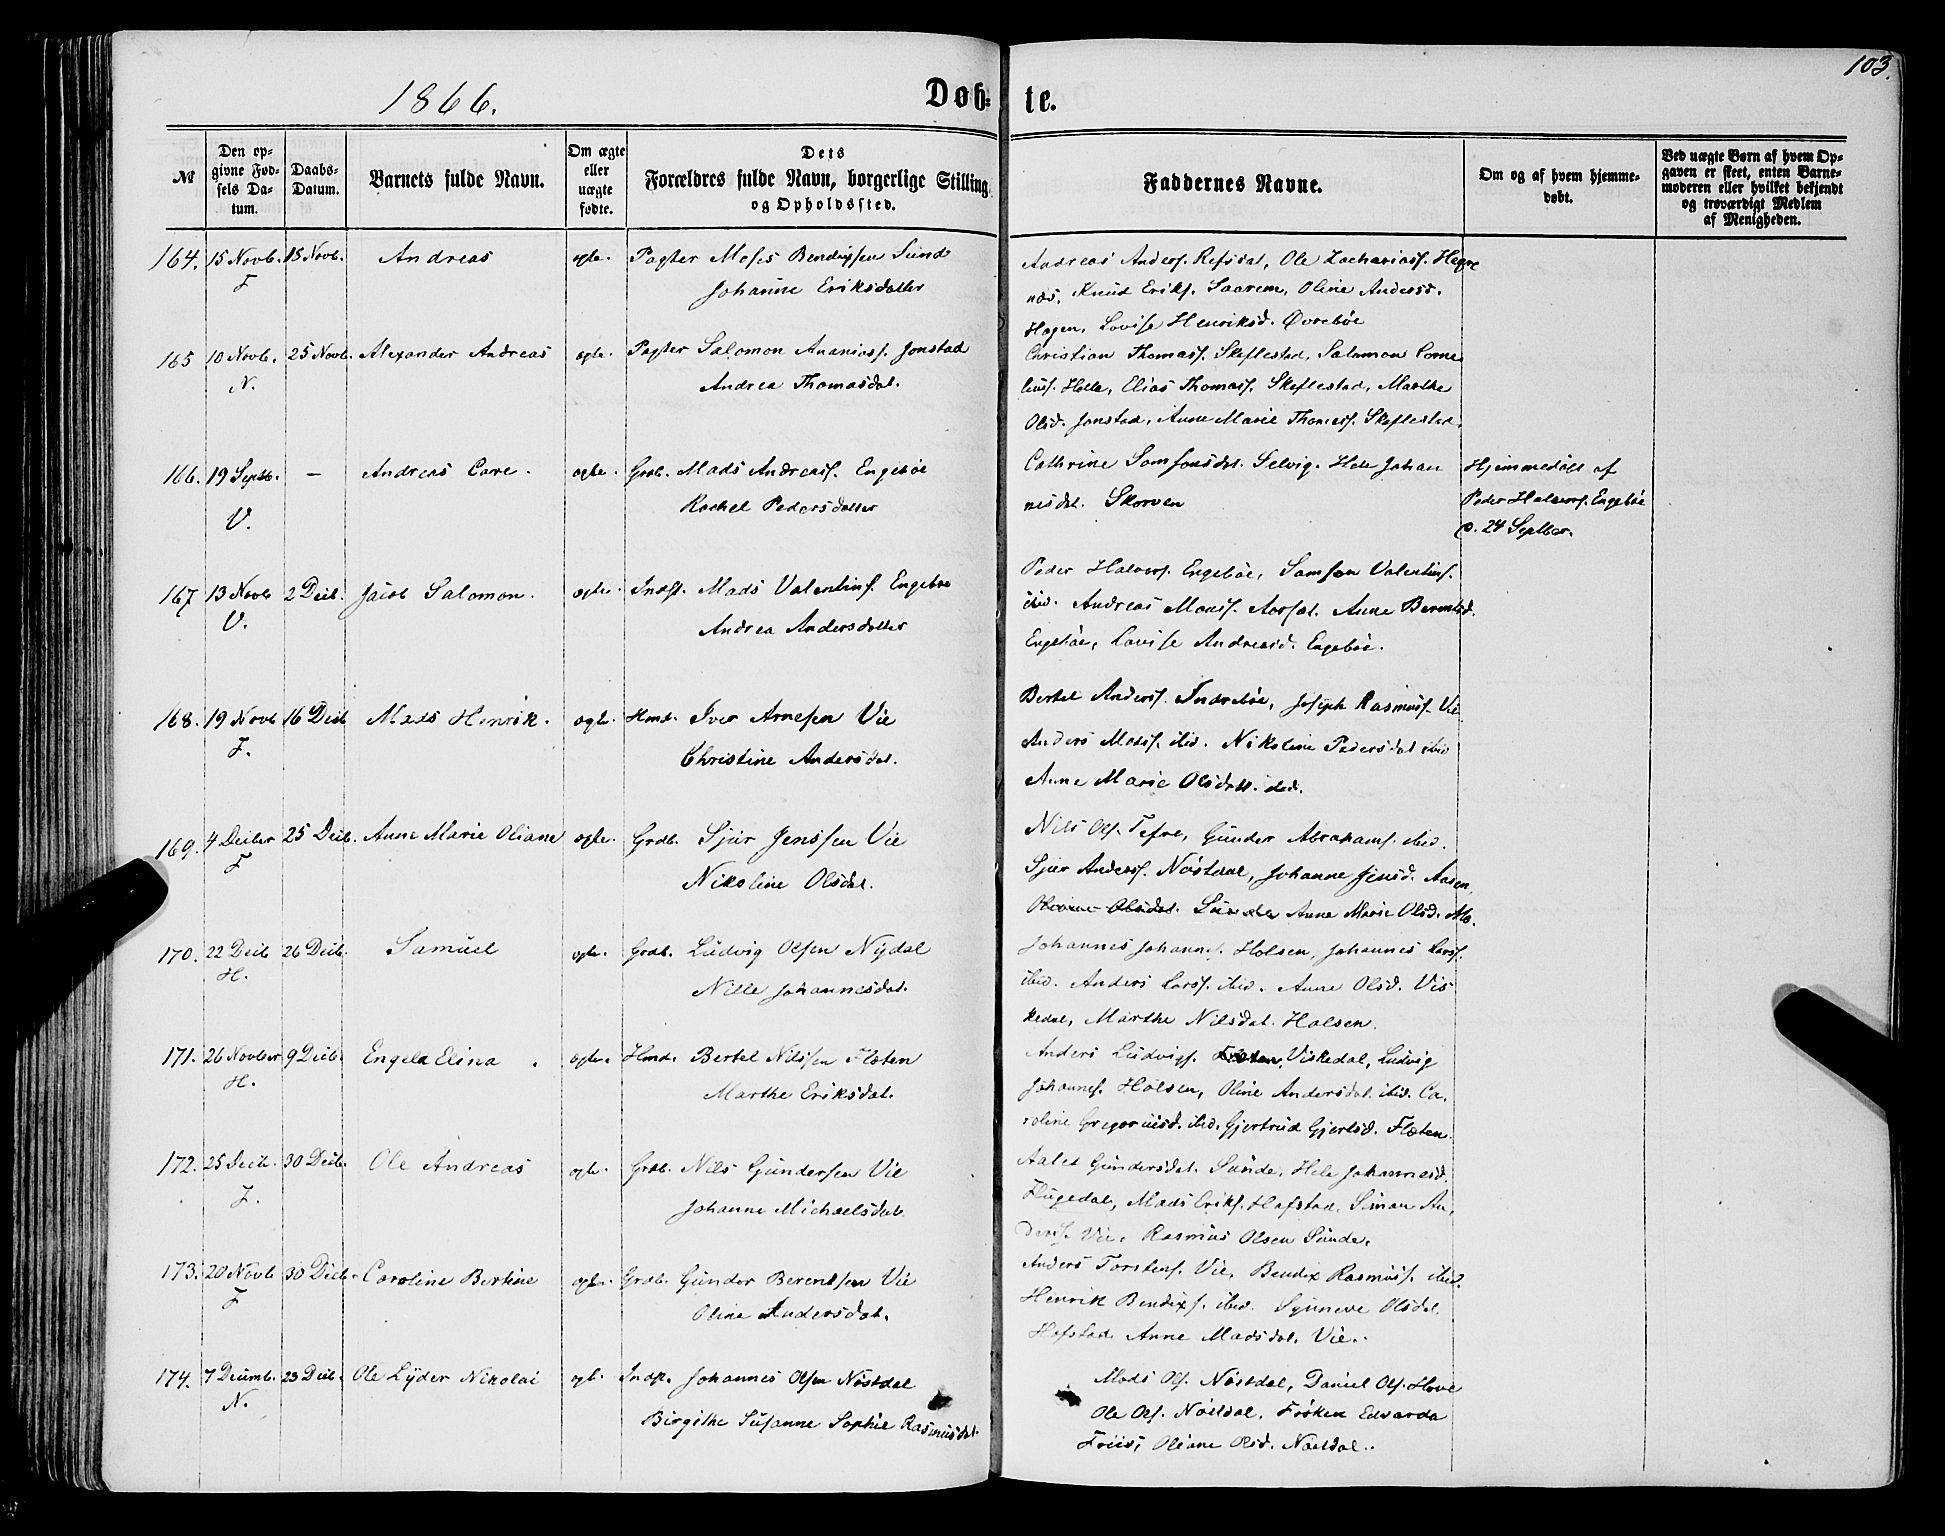 103.
1866.
Døb- te.
№
Den op-
givne Fød-
sels Da-
tum.
Daabs-
Datum.
Barnets fulde Navn.
Om ægte
eller
uægte
fødte.
Dets
Forældres fulde Navn, borgerlige Stilling
og Opholdssted.
Faddernes Navne.
Om og af hvem hjemme-
døbt.
Ved uægte Børn af hvem Op-
gaven er skeet, enten Barne-
moderen eller hvilket bekjendt
og troværdigt Medlem
af Menigheden.
164. 15 Novb. 15 Novb. Andreas ægte. Pagter Moses Bendixsen Sunde
F Johanne Eriksdatter
Andreas Anders. Refsdal, Ole Zachariass. Hegre
næs, Knud Eriks. Saarem, Oline Andersd.
Hagen, Lovise Henriksd. Øvrebøe
165 10 Novb. 25 Novb. Alexander Andreas ægte. Pagter Salomon Ananiass. Jonstad
N. Andrea Thomasdat.
Christian Thomass. Skeflestad, Salomon Corne
lius. Helle, Elias Thomass. Skeflestad, Marthe
Olsd. Jonstad, Anne Marie Thomass. Skeflestad.
166. 19 Septb. — Andreas Care. ægte. Grdb. Mads Andreass. Engebøe
V. Rachel Pedersdatter
Cathrine Samsonsdat. Selvig. Hele Johan
nesdat. Skorven
Hjemmedøbt af
Peder Halvors. Engebøe
d. 24 Septber.
167 13 Novb 2 Decb. Jacob Salomon. ægte. Indst. Mads Valentins. Engebøe
V. Andrea Andersdatter
Peder Halvors. Engebøe, Samson Valentins.
ibid. Andreas Monss. Aarsæt. Anne Berentsd.
Engebøe, Lovise Andreasd. Engebøe.
168. 19 Novb 16 Decb Mads Henrik. ægte. Hmd. Iver Arnesen Vie
F. Christine Andersdat.
Bertel Anderss. Indrebøe, Joseph Rasmuss. Vie
Anders Madss. ibid. Nikoline Pedersdat ibid
Anne Marie Olsdatt. ibid.
169. 4 Decber 25 Decb. Anne Marie Oliane ægte. Grdb. Sjur Jenssen Vie
F Nikoline Olsdat.
Nils Ols. Tefre, Gunder Abrahams. ibid.
Sjur Anderss. Nøstdal, Johanne Jensd. Aasen,
Oliane Olsdat. Sunde Anne Marie Olsd. Mo.
170. 22 Decb 26 Decb. Samuel ægte. Grdb. Ludvig Olsen Nydal
H. Nille Johannesdat.
Johannes Johannes. Holsen, Johannes Larss.
ibid. Anders Larss. ibid. Anne Olsd. Vis
kedal, Marthe Nilsdat. Holsen.
171. 26 Novber 9 Decb. Engela Elina. ægte. Hmd. Bertel Nilssen Flæten
H. Marthe Eriksdat.
Anders Ludvigs. Flæten, Viskedal, Ludvig
Johannes. Holsen, Oline Andersdat. ibid. Ca.
roline Gregoriusd. ibid. Gjertrud Gjertsd. Flæten.
172. 25 Decb. 30 Decb. Ole Andreas ægte. Grdb. Nils Gundersen Vie
F. Johanne Michaelsdat.
Aalet Gundersdat. Sunde, Hele Johannesd.
Flugedal, Mads Eriks. Hafstad, Simon An,
ders. Vie, Rasmus Olsen Sunde.
173. 20 Novb 30 Decb. Caroline Bertine ægte. Grdb. Gunder Berentsen Vie
F Oline Andersdat.
Anders Torstens. Vie, Bendix Rasmuss. ibid.
Henrik Bendixs. ibid. Synneve Olsdat.
Hafstad Anne Madsdat. Vie.
174. 7 Decemb. 23 Decb. Ole Lyder Nikolai ægt. Indst. Johannes Olsen Nøstdal
N. Birgithe Susanne Sophie Rasmusdat.
Mads Ols. Nøstdal, Daniel Ols. Hove
Ole Ols. Nøstdal, Frøken Edvarda
Friis, Oliane Olsd. Nøstdal.